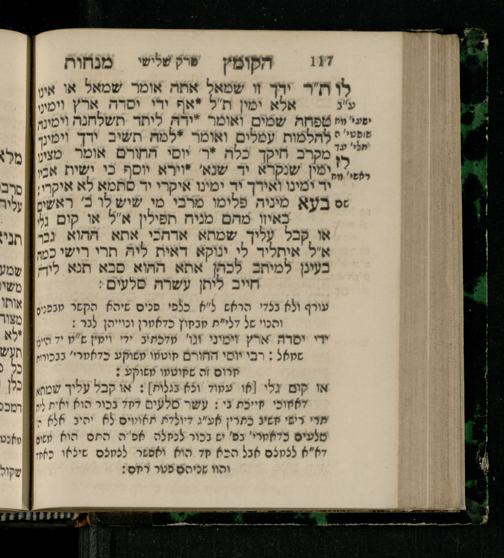 117 הקומץ פרק שלישי מנחות
לו ת״ר ידך זו שמאל אתה אומר שמאל או אינו
ע״ב אלא ימין ת״ל *אף ידי יסדה ארץ וימיני
ישעי׳ מח טפחה שמים ואומר *ידה ליתד תשלחנה וימינה
שופטי׳ ה להלמות עמלים ואומר *למה תשיב ידך וימינך
תלי׳ עד מקרב חיקך כלה *ר׳ יוסי החורם אומר מצינו
לז ימין שנקרא יד שנא׳ *וירא יוסף כי ישית אביו
ראשי׳ מח יד ימינו ואידך יד ימינו איקרי יד סתמא לא איקרי:
שם בעא מיניה פלימו מרבי מי שיש לו ב׳ ראשים
באיזו מהם מניח תפילין א״ל או קום גלי
או קבל עליך שמתא אדהכי אתא ההוא גברא
א״ל איתליד לי ינוקא דאית ליה תרי רישי כמה
בעינן למיתב לכהן אתא ההוא סבא תנא ליה
חייב ליתן עשרה סלעים:
עורף ולא בגדי הראש ל״א כלפי פנים שיהא הקשר מבפנים
והנוי של דלי״ת מבחוץ כדאמרן ונוייהן לבר:
ידי יסדה ארץ וימיני וגו׳ מדכתיב ידי וימין ש״מ יד היינו
שמאל: רבי יוסי החורם חוטמו משוקע כדאמרי׳ בבכורות
חרום זה שחוטמו משוקע:
או קום גלי [או עמוד ולא בגלות]: או קבל עליך שמתא
דאחוכי חייכת בי: עשר סלעים דקד בכור הוא ואית ליה
תרי רישי חשיב כתרין אע״ג דיולדת תאומים לא יהיב אלא ה׳
סלעים כדאמרי׳ בפ׳ יש בכור לנחלה אפ״ה התם הוא משום
דא״א לצמצם אבל הכא חד הוא ואפשר לצמצם שיצאו כאחד
והוו שניהם פטר רחם: